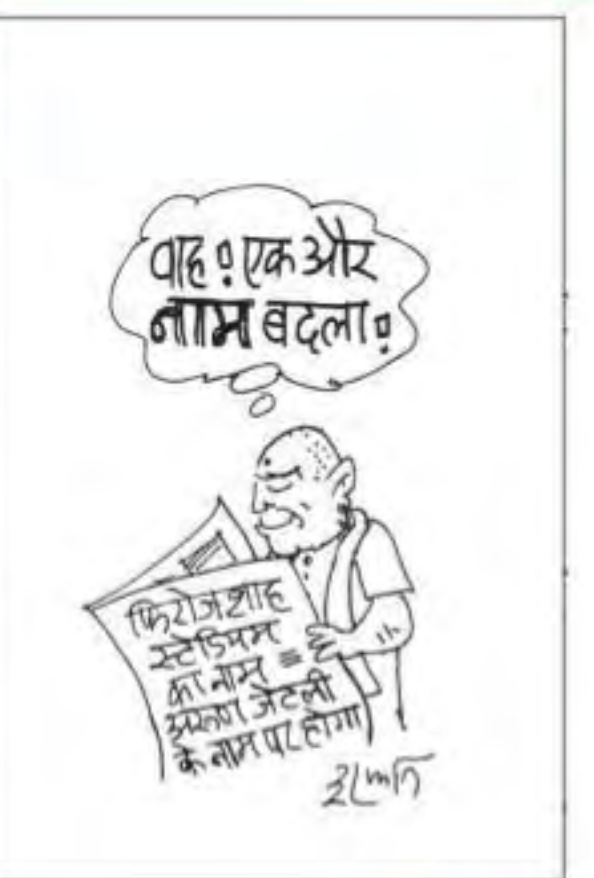 वाह! एक और
नाम बदला!
फिरोजशाह
स्टेडियम
का नाम
अरूण जेटली
के नाम पर होगा